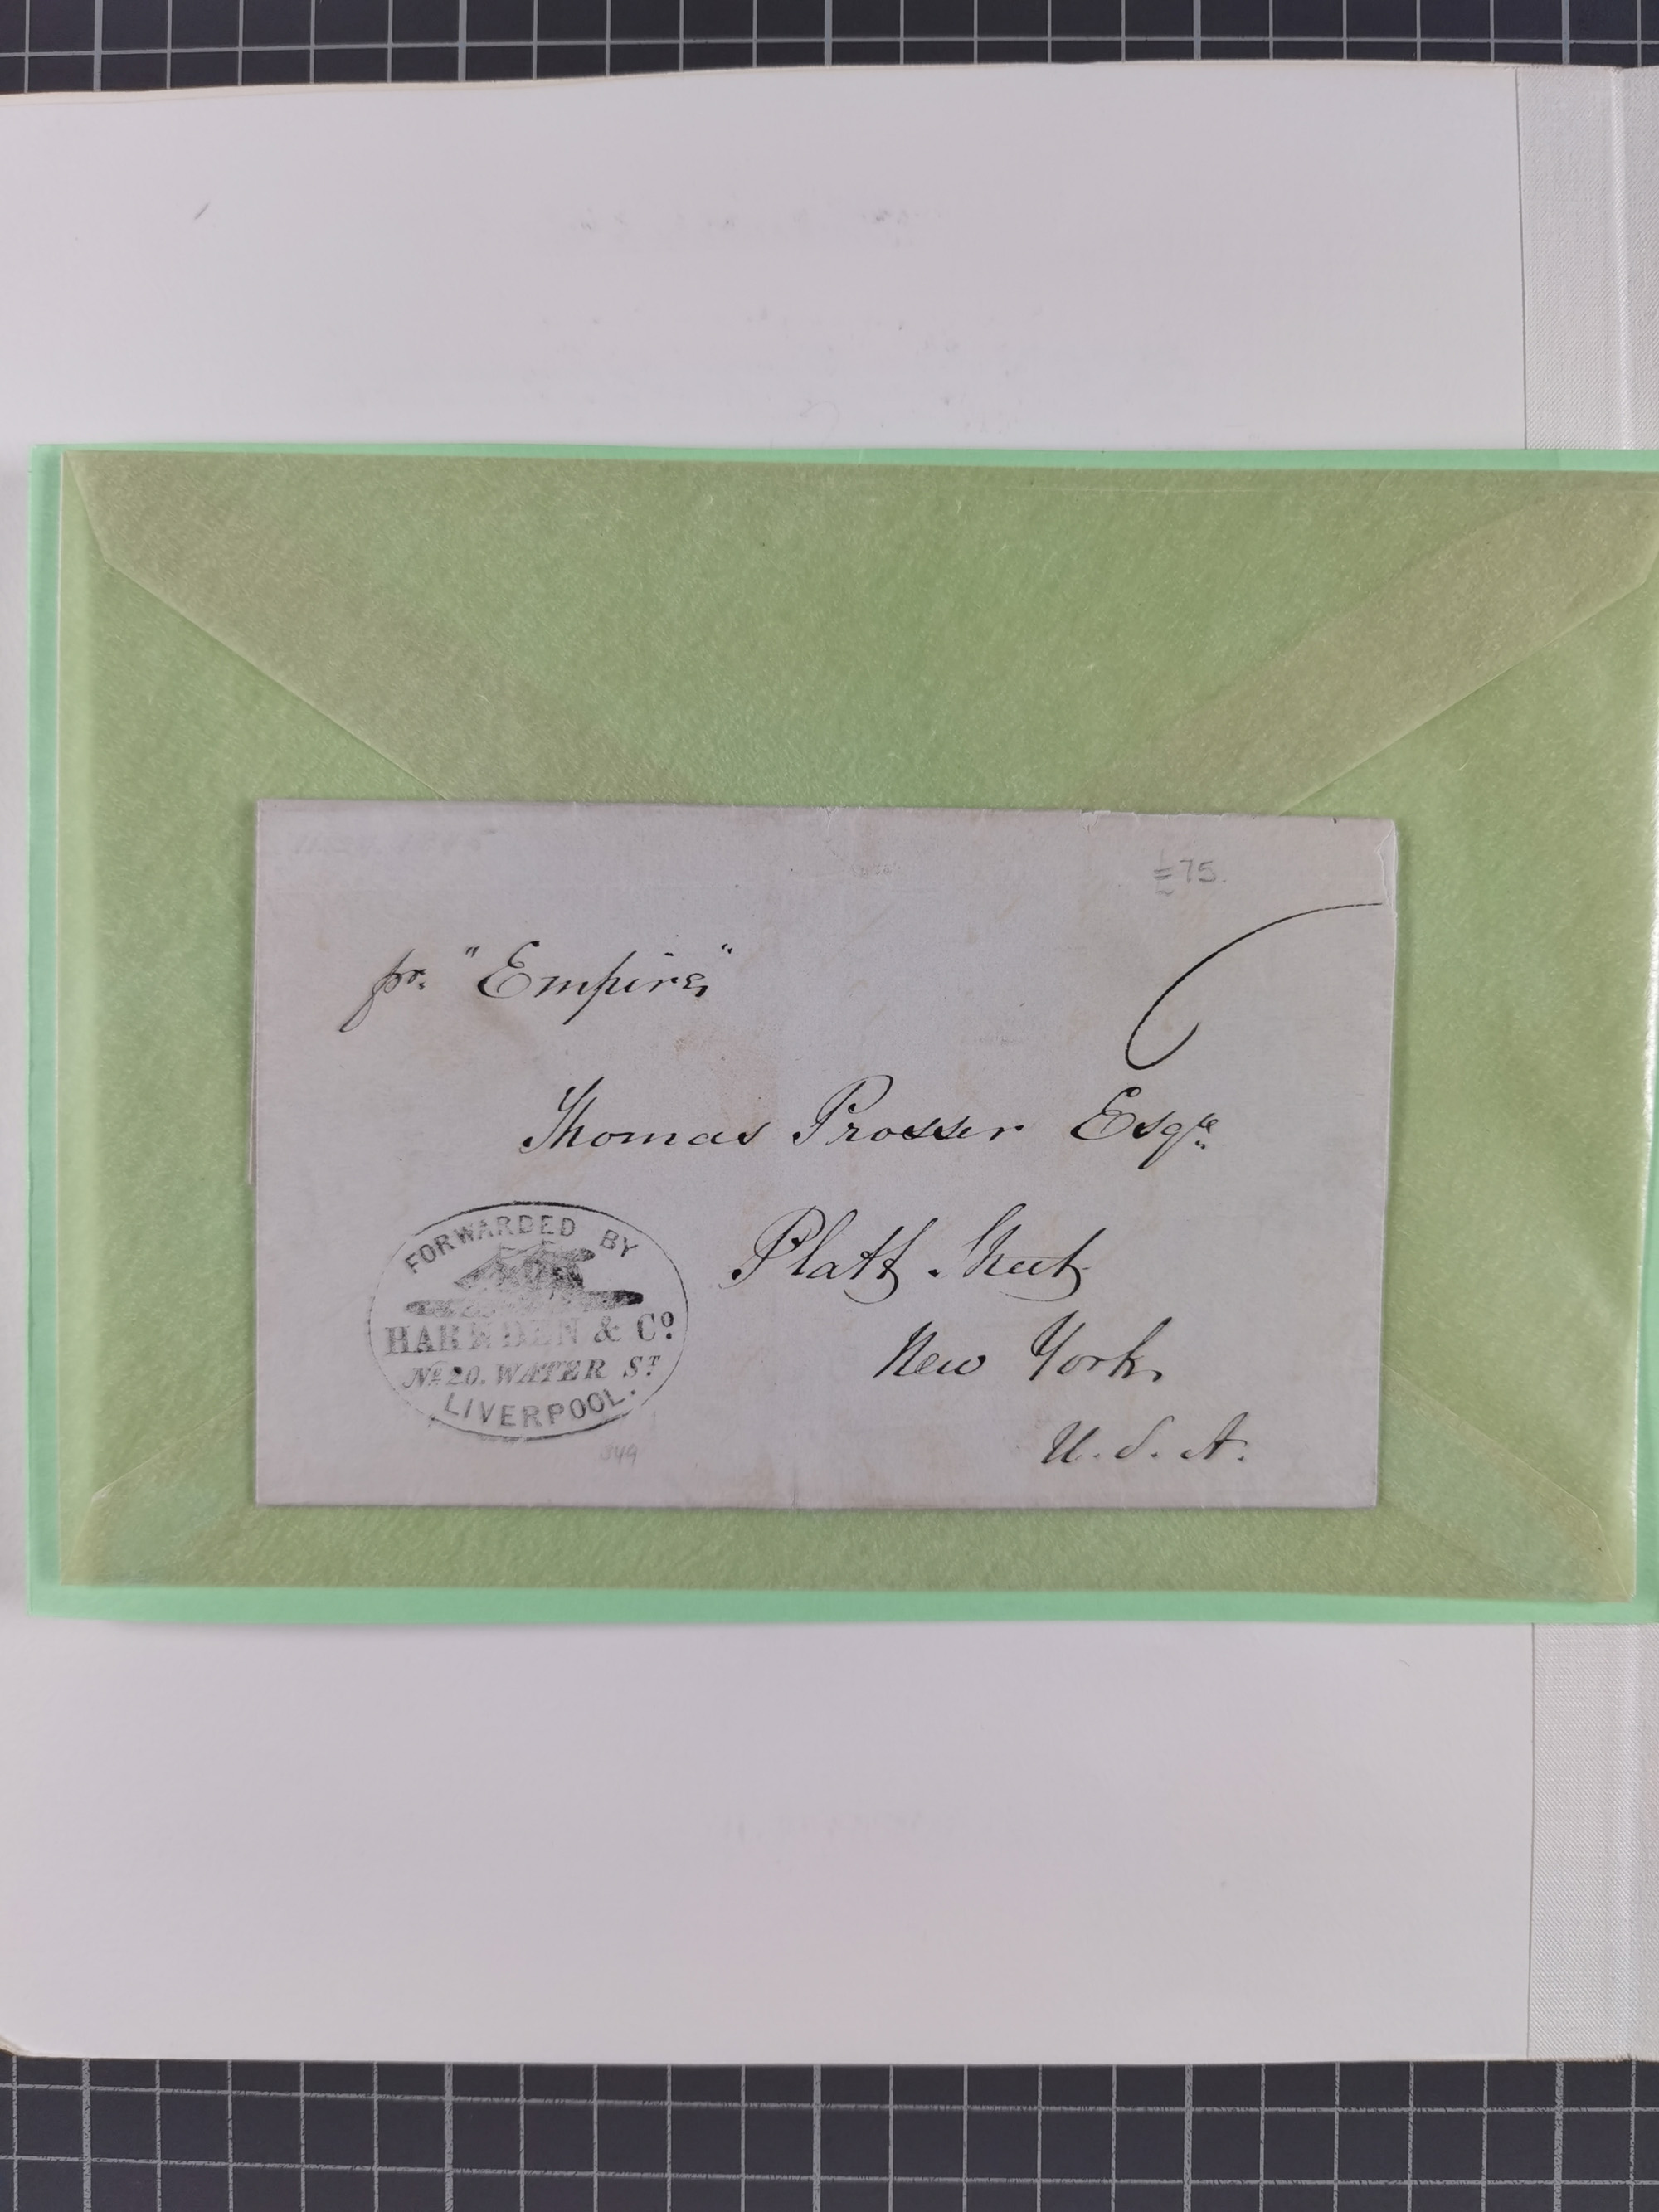 75.
pr. "Empire"
6
Thomas Prosser Esqre
Platt Street
New York
U. S. A.
FORWARDED BY
HARNDEN & Co.
No. 20. WATER ST
LIVERPOOL.
349